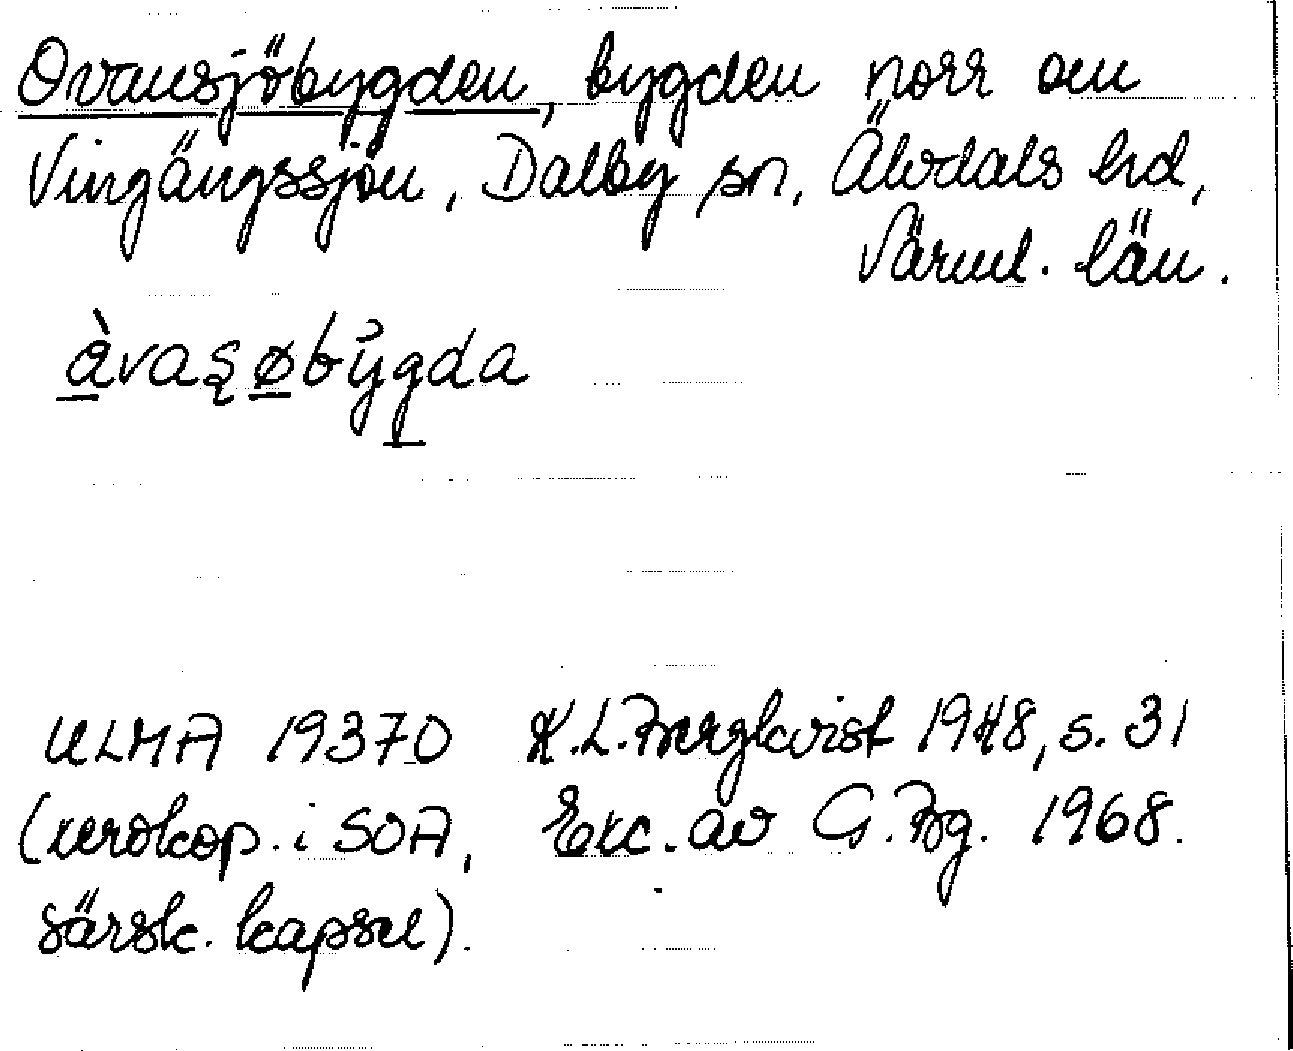 Ovansjöbygden, bygden norr om
Vingängssjön, Dalby sn, Älvdals hd,
Värml. län.
àvaʂøbygda
ULMA 19370 K.L. Bergkvist 1948, s. 31
(xerokop. i SOA, Exc. av G. Bg. 1968.
särsk. kapsel).